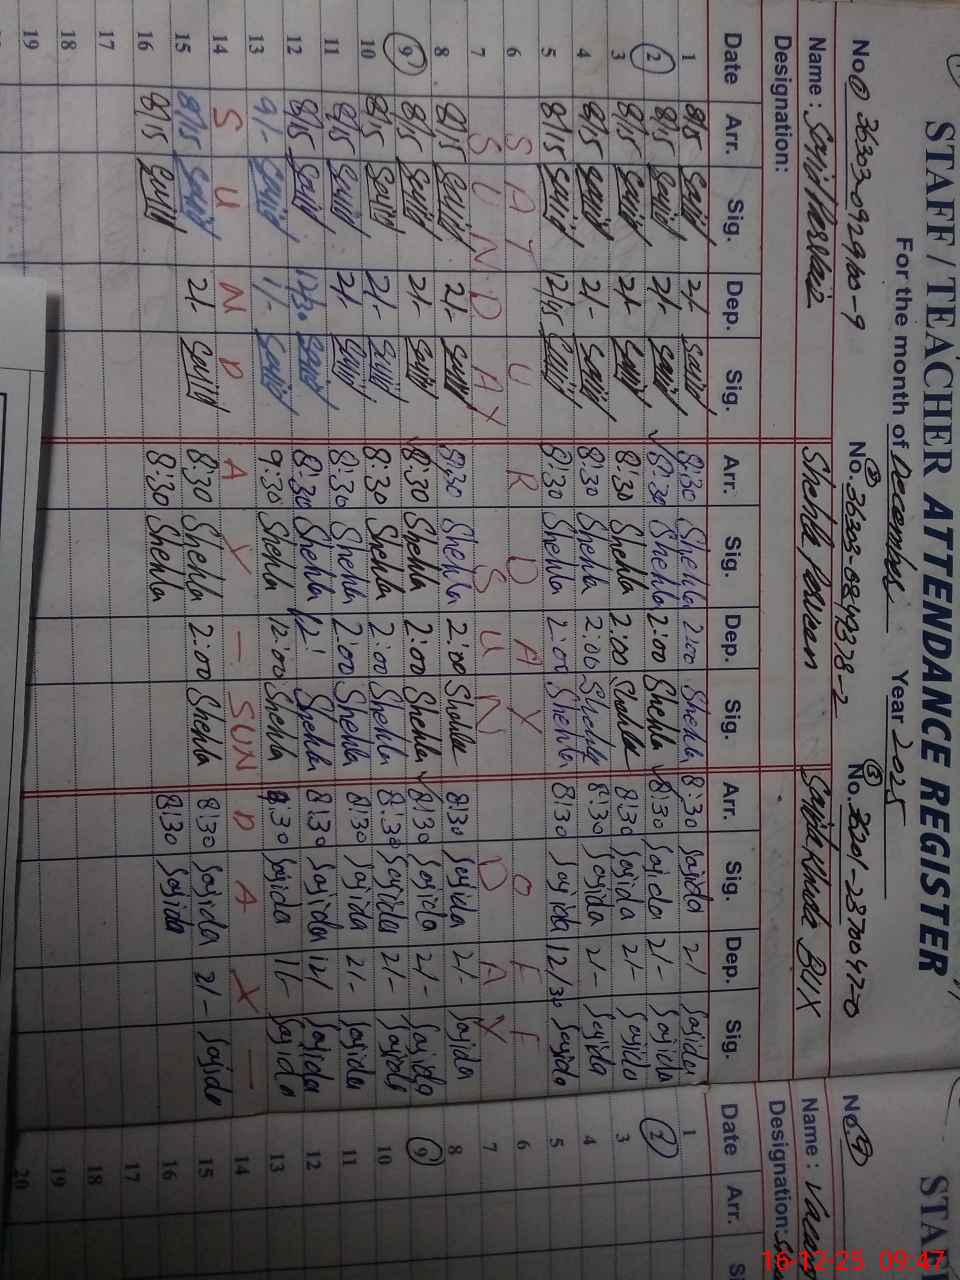 STAFF / TEACHER ATTENDANCE REGISTER
For the month of December Year 2025
No. ① 36303-0929100-9 No. ② 36303-0849378-2 No. ③
Name: Shehla
Designation:
Date Arr. Sig. Dep. Sig. Arr. Sig. Dep. Sig. Arr. Sig. Dep. Sig.
1 8/15 Sajid 2/- Sajid 8:30 Shehla 2:00 Shehla 8:30 Sajida 2/ Sajida
2 8/15 Sajid 2/- Sajid 8:30 Shehla 2:00 Shehla 8:30 Sajida 2/- Sajida
3 8/15 Sajid 2/- Sajid 8:30 Shehla 2:00 Shehla 8:30 Sajida 2/- Sajida
4 8/15 Sajid 2/- Sajid 8:30 Shehla 2:00 Shehla 8:30 Sajida 2/- Sajida
5 8/15 Sajid 12/15 Sajid 8:30 Shehla 2:00 Shehla 8:30 Sajida 12/30 Sajida
6 S A T U R D A Y O F F
7 S U N D A Y S U N D A Y
8 8/15 Sajid 2/- Sajid 8:30 Shehla 2:00 Shehla 8:30 Sajida 2/- Sajida
9 8/15 Sajid 2/- Sajid 8:30 Shehla 2:00 Shehla 8:30 Sajida 2/- Sajida
10 8/15 Sajid 2/- Sajid 8:30 Shehla 2:00 Shehla 8:30 Sajida 2/- Sajida
11 8/15 Sajid 2/- Sajid 8:30 Shehla 2:00 Shehla 8:30 Sajida 2/- Sajida
12 8/15 Sajid 12/30 Sajid 8:30 Shehla 12: Shehla 8:30 Sajida 12/ Sajida
13 9/- Sajid 1/- Sajid 9:30 Shehla 12:00 Shehla 9:30 Sajida 1/- Sajida
14 S U N D A Y — SUN D A Y —
15 8/15 Sajid 2/- Sajid 8:30 Shehla 2:00 Shehla 8:30 Sajida 2/- Sajida
16 8/15 Sajid 8:30 Shehla 8:30 Sajida
17
18
19
STA
No. ④
Name:
Designation:
Date Arr. S
1
2
3
4
5
6
7
8
9
10
11
12
13
14
15
16
17
18
19
20
16-12-25 09:47